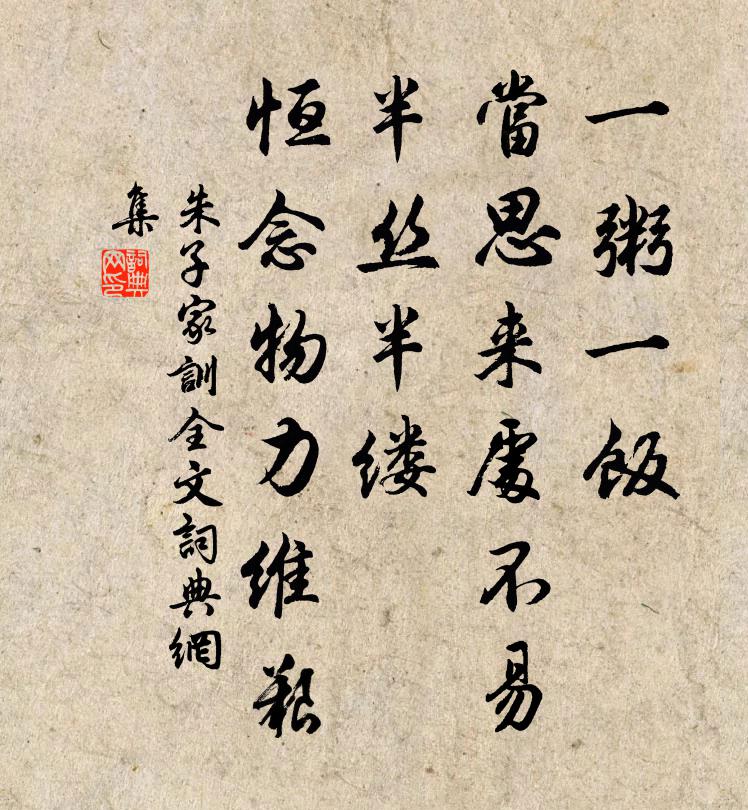 一粥一飯
當思来處不易
半丝半缕
恒念物力維艱
朱子家訓全文詞典網
集
詞典
网印